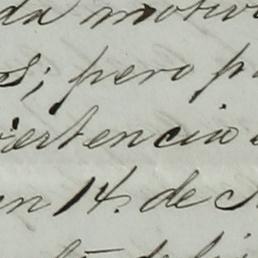 da motivo
s; pero p
ertencia
n 14. de